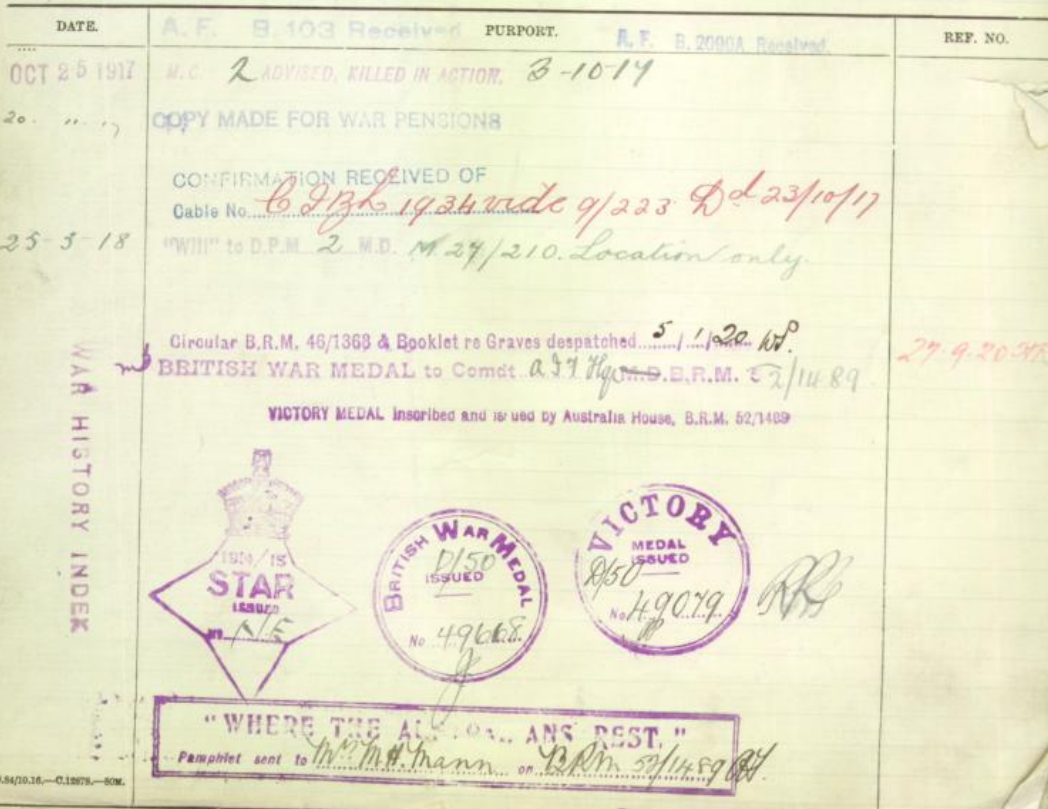 DATE. PURPORT. REF. NO.
A. F. B. 103 Received A. F. B. 2090A Received.
OCT 25 1917 M.C. 2 ADVISED, KILLED IN ACTION. 3-10-17
20. " . 17 COPY MADE FOR WAR PENSIONS
CONFIRMATION RECEIVED OF
Cable No. 1934 vide 9/223 Dd 23/10/17
25-3-18 "Will" to D.P.M. 2 M.D. M.27/210. Location only.
Circular B.R.M. 46/1368 & Booklet re Graves despatched 5/1/20
27-9-20
BRITISH WAR MEDAL to Comdt A.I.F. Hqrs M.D. B.R.M. 52/1489
VICTORY MEDAL inscribed and issued by Australia House, B.R.M. 52/1489
WAR HISTORY INDEX
1914/15
STAR
ISSUED
No. N/E
BRITISH WAR MEDAL
D/50
ISSUED
No 49668
VICTORY
MEDAL
ISSUED
D/50
No 49079
"WHERE THE AUSTRALIANS REST."
Pamphlet sent to Mrs M.H. Mann on BRM 52/1489
C.12878.—50M.